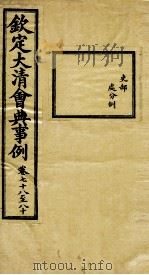 欽定大清會典事例
卷七十八至八十
吏部
處分例
mtoou.info